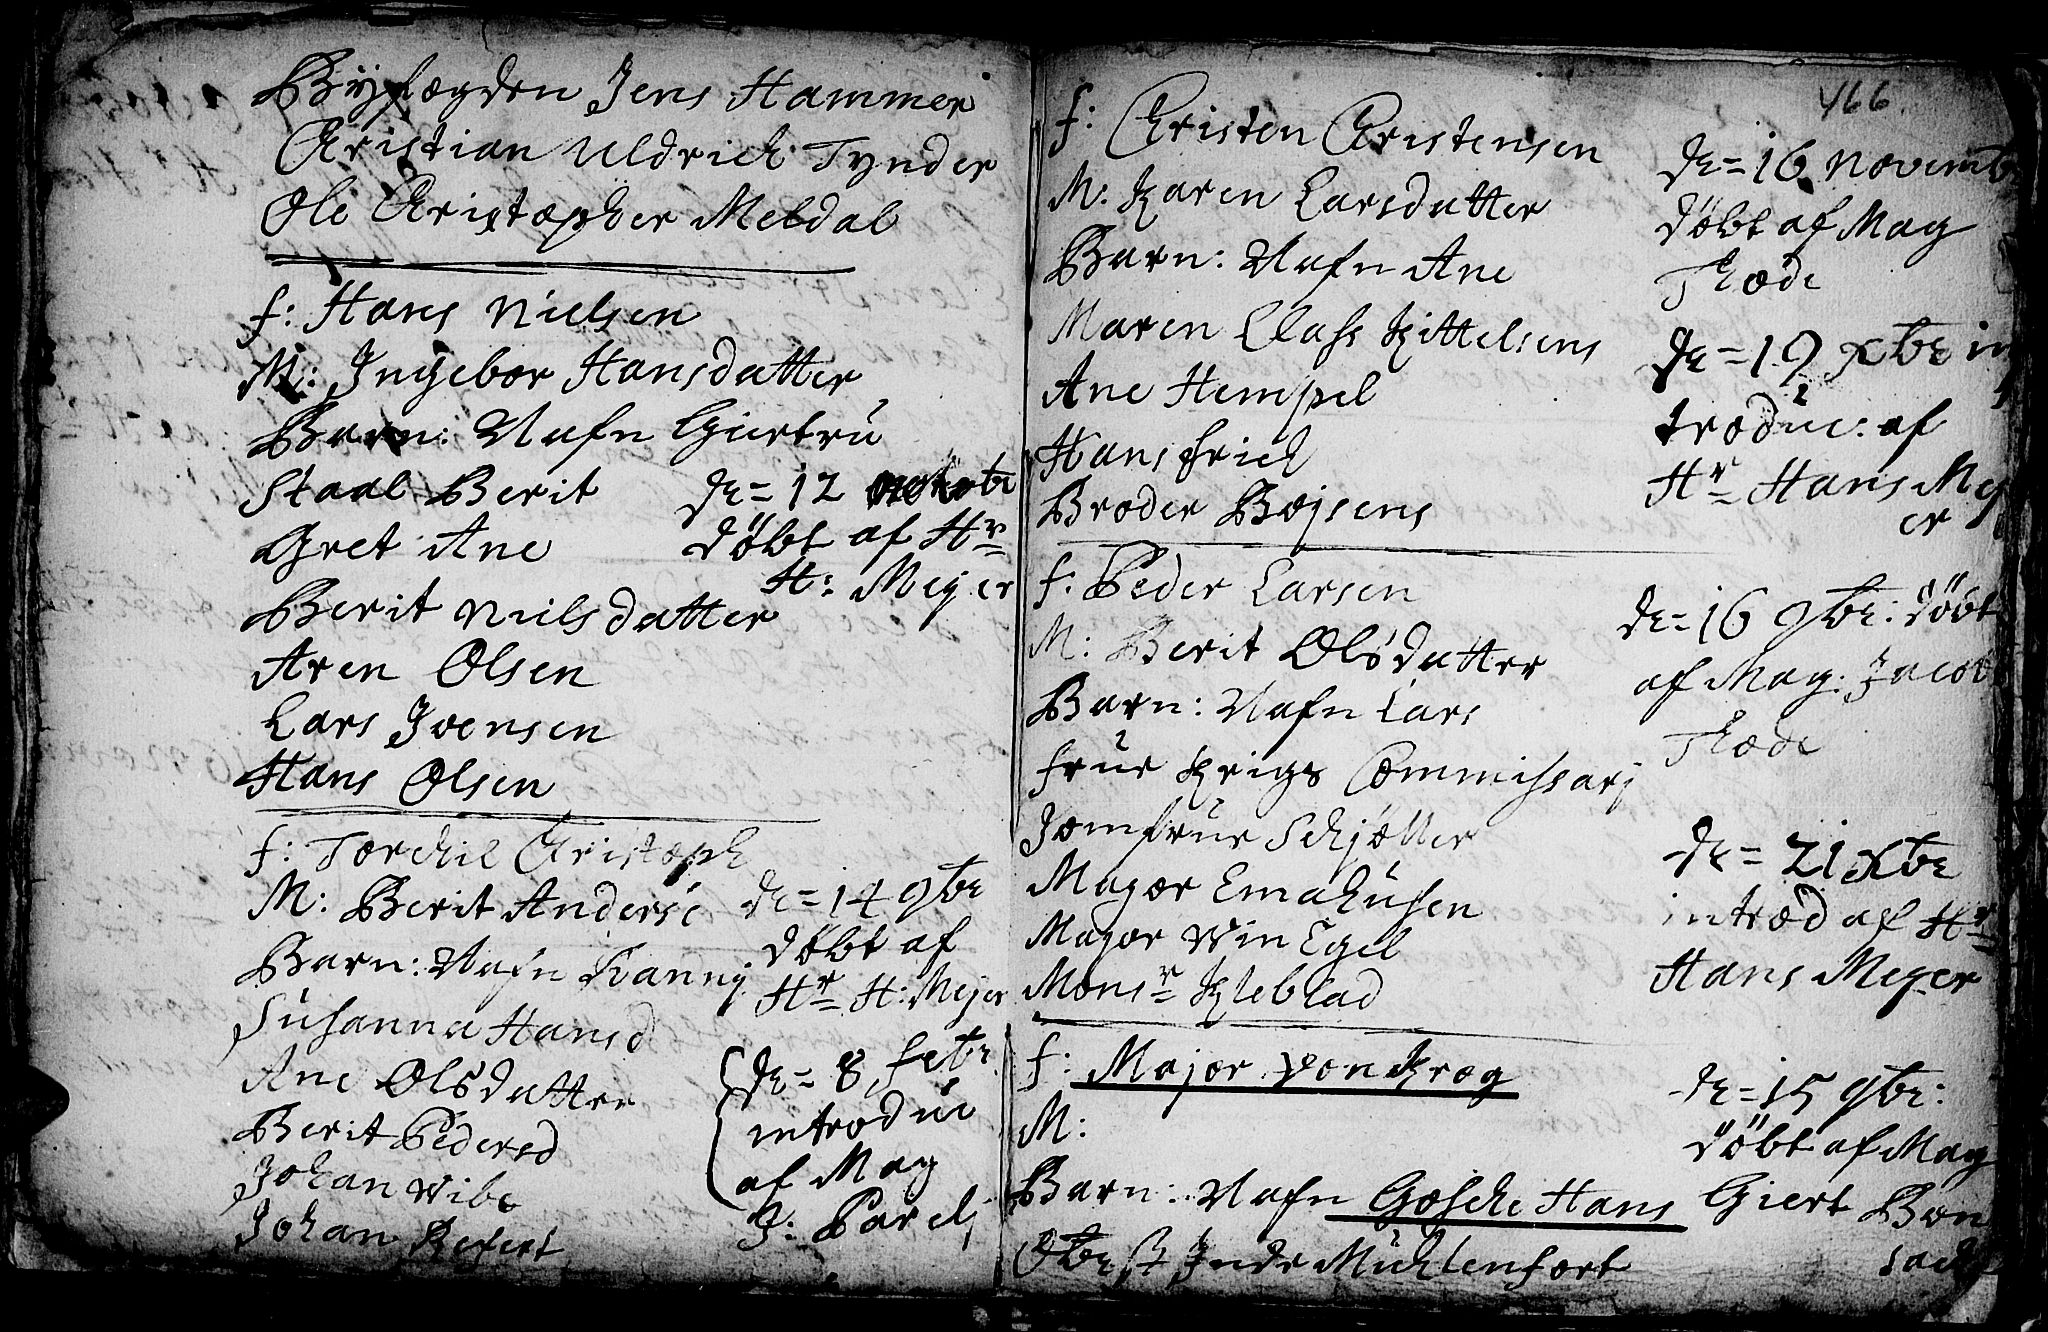 Byfogden Jens Hammer
Christian Uldrich Tynder
Ole Christopher Meldal
f: Hans Nielsen
M: Ingebor Hansdatter
Barn: Nafn Giertrü
Staal Berit
Gret Ane
Berit Nielsdatter
Aren Olsen
Lars Ivensen
Hans Olsen
d= 12
döbt af Hr
H: Meyer
f: Torchil Christoph
M: Berit Anders
Barn: Nafn Fanny
Susanna Hansd
Ane Olsdatter
Berit Pedersd
Johan Vibe
Johan
d= 14 9br
döbt af
Hr H: Mejer
d= 8 febr
introdüc
af Mag
J: Parelj
466
f: Christen Christensen
M: Karen Larsdatter
Barn: Nafn Ane
Maren Class Kittelsens
Ane Hempel
Hans frich
Broder Bojsens
d= 16 Novemb
döbt af Mag
Thode
d= 19 xbr in
trodüc: af
Hr Hans Mey
er
f: Peder Larsen
M: Berit Olsdatter
Barn: Nafn Lars
frue Krigs Commissarj
Jomfrue Schjøtter
Major Emahusen
Major Vin Egel
Monsr Kleblad
d= 16 9br: döbt
af Mag: Jacob
Thode
d= 21 xbr
introd af Hr
Hans Meyer
f: Major von Krog
M:
Barn: Nafn Gosche Hans Giert
Obrst Mühlenfort
d= 15 9br:
döbt af Mag
Bon
sach